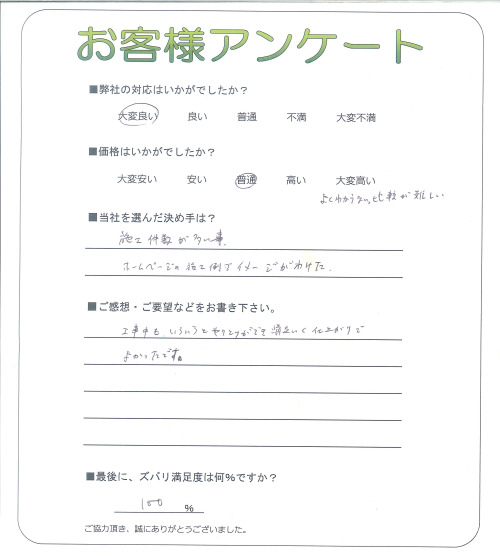 お客様アンケート
■弊社の対応はいかがでしたか？
大変良い 良い 普通 不満 大変不満
■価格はいかがでしたか？
大変安い 安い 普通 高い 大変高い
よくわからない、比較が難しい
■当社を選んだ決め手は？
施工件数が多い事。
ホームページの施工例でイメージがわけた。
■ご感想・ご要望などをお書き下さい。
工事中もいろいろとやりとりができ満足いく仕上がりで
よかったです。
■最後に、ズバリ満足度は何％ですか？
100 %
ご協力頂き、誠にありがとうございました。